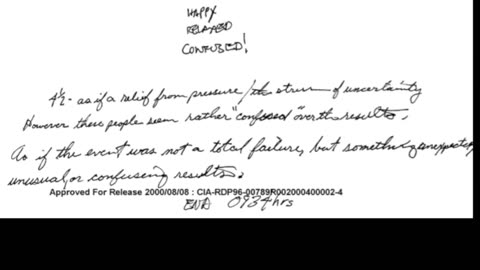 HAPPY
RELAXED
CONFUSED!
4½- as if a relief from pressure / the strain of uncertainty
However these people seem rather "confused" over the results.
As if the event was not a total failure, but something unexpectedly
unusual or confusing results.
Approved For Release 2000/08/08 : CIA-RDP96-00789R002000400002-4
END 0934 hrs